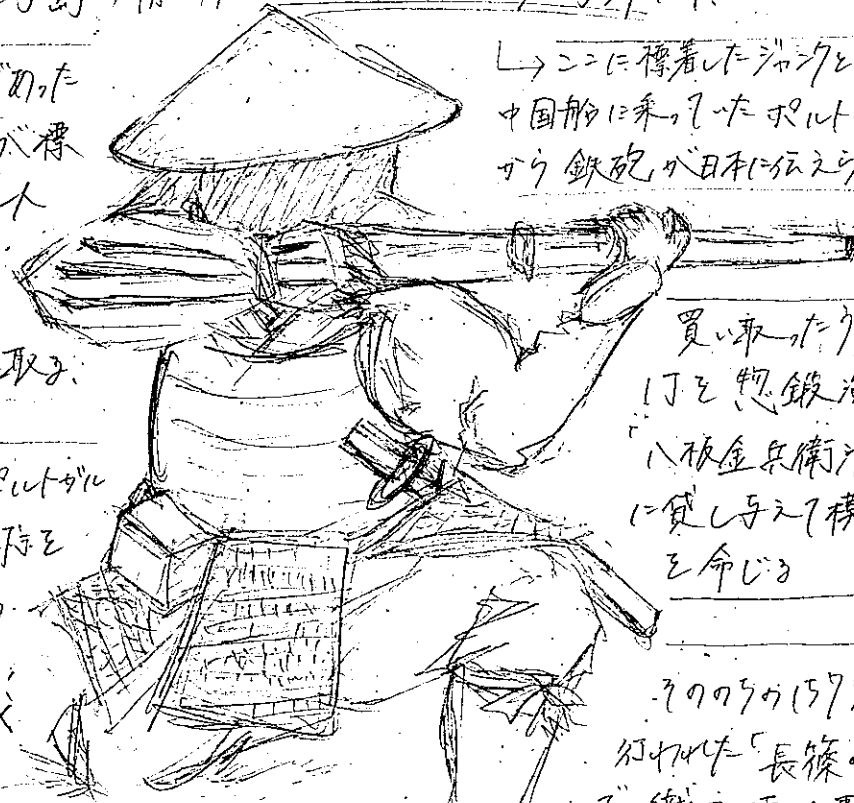 であった
が標
人
取る.
ポルトガル
除を
く
↳ ここに標着したジャンクと
中国船に乗っていたポルト
から鉄砲が日本に伝えら
買い取ったう
1丁を惣鍛冶
八板金兵衛
に貸し与えて模
を命じる
そののちの157
行われた「長篠
で